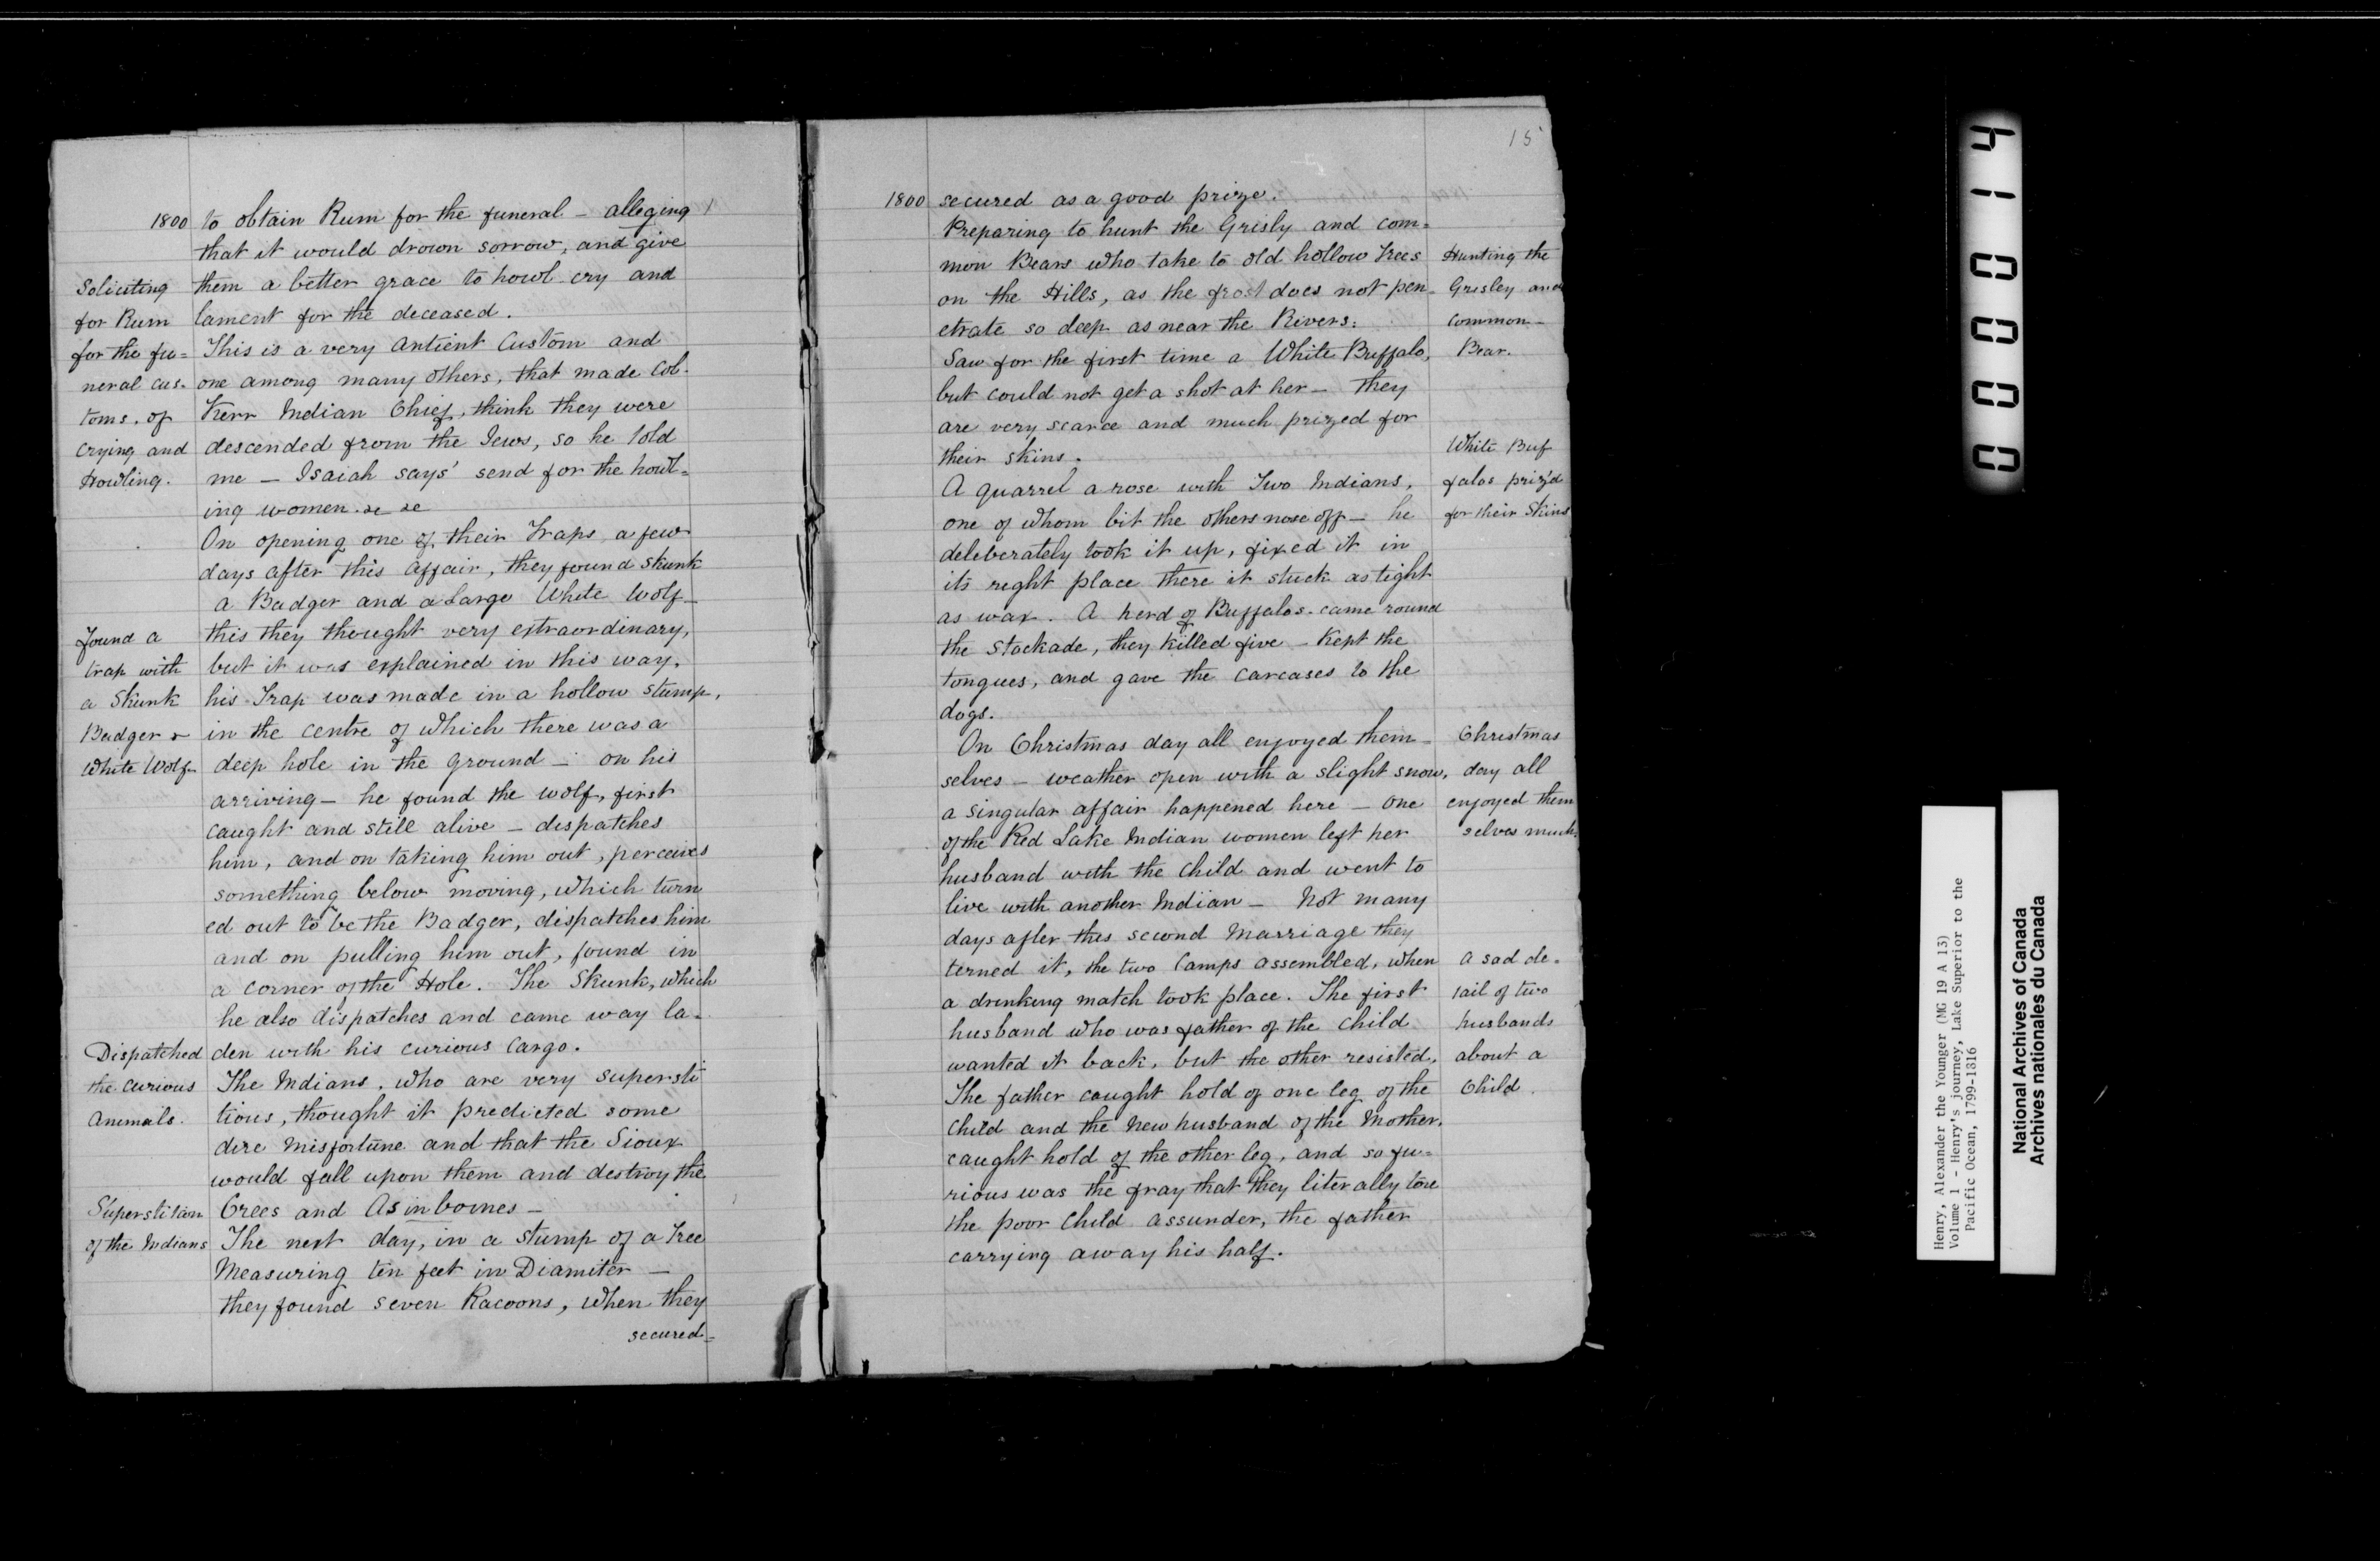 1800
to obtain Rum for the funeral – alleging
that it would drown sorrow, and give
them a better grace to howl cry and
lament for the deceased.
This is a very Antient Custom and
one among many others, that made Col.
Kerr Indian Chief, think they were
descended from the Jews, so he told
me – Isaiah says' send for the howl=
ing women. &c &c
On opening one of their Traps a few
days after this affair, they found skunk
a Badger and a Large White Wolf –
this they thought very extraordinary,
but it was explained in this way,
his Trap was made in a hollow stump,
in the centre of which there was a
deep hole in the ground – on his
arriving – he found the wolf, first
caught and still alive – dispatches
him, and on taking him out, perceives
something below moving, which turn
ed out to be the Badger, dispatches him
and on pulling him out, found in
a corner of the Hole. The Skunk, which
he also dispatches and came way la-
den with his curious Cargo.
The Indians, who are very supersti
tious, thought it predicted some
dire Misfortune and that the Sioux
would fall upon them and destroy the
Crees and Asinboines –
The next day, in a stump of a Tree
Measuring ten feet in Diamiter –
they found seven Racoons, when they
secured=
Soliciting
for Rum
for the fu=
neral cus-
toms, of
crying and
Howling.
found a
trap with
a Skunk
Badger &
White Wolf
Dispatched
the curious
Animals.
Superstition
of the Indians
15
1800
secured as a good prize.
Preparing to hunt the Grisly and com=
mon Bears who take to old hollow trees
on the Hills, as the frost does not pen-
etrate so deep as near the Rivers.
Saw for the first time a White Buffalo,
but could not get a shot at her – they
are very scarce and much prized for
their skins.
A quarrel arose with Two Indians,
one of whom bit the others nose off – he
deleberately took it up, fixed it in
its reght place there it stuck as tight
as wax. A herd of Buffalos came round
the stockade, they killed five – Kept the
tongues, and gave the carcases to the
dogs.
On Christmas day all enjoyed them –
selves – weather open with a slight snow,
a singular affair happened here – One
of the Red Lake Indian women left her
husband with the child and went to
live with another Indian – Not many
days after this second Marriage they
terned it, the two Camps assembled, when
a drinking match took place. The first
husband who was father of the child
wanted it back, but the other resisted,
The father caught hold of one leg of the
child and the New husband of the Mother,
caught hold of the other leg, and so fu=
rious was the fray that they literally tore
the poor child assunder, the father
carrying away his half.
Hunting the
Grisley and
common
Bear.
White Buf
falos priz'd
for their Skins
Christmas
day all
enjoyed them
selves much.
A sad de-
tail of two
husbands
about a
Child.
000014
Henry, Alexander the Younger (MG 19 A 13)
Volume 1 - Henry's journey, Lake Superior to the
Pacific Ocean, 1799-1816
National Archives of Canada
Archives nationales du Canada